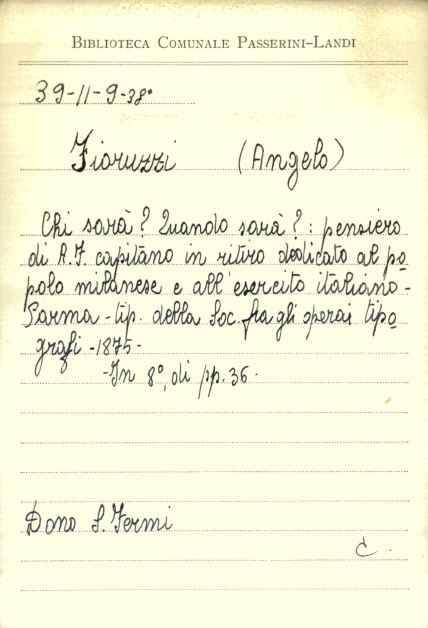 BIBLIOTECA COMUNALE PASSERINI-LANDI
39-11-9-38°
Fioruzzi (Angelo)
Chi sarà? Quando sarà?: pensiero
di A.F. capitano in ritiro dedicato al po
polo milanese e all'esercito italiano -
Parma - tip. della Soc. fra gli operai tipo
grafi - 1875 -
- In 8°, di pp. 36 -
Dono S. Fermi
C.